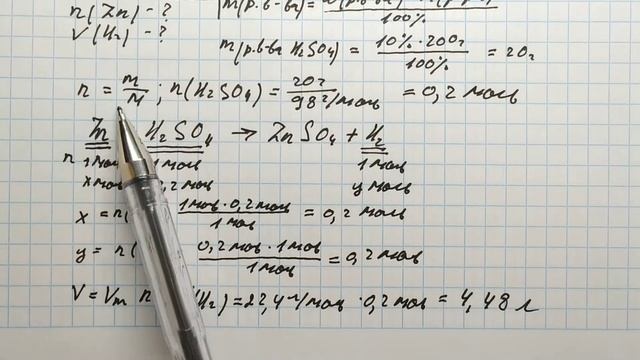 n(Zn) - ?
V(H₂) - ?
m(р.в-ва) =
100%
m(р.в-ва H₂SO₄) = 10% · 200г / 100% = 20г
n = m/M ; n(H₂SO₄) = 20г / 98 г/моль = 0,2 моль
Zn H₂SO₄ → ZnSO₄ + H₂
n 1моль 1моль 1моль
x моль 0,2 моль y моль
x = n( 1моль · 0,2моль / 1моль = 0,2 моль
y = n( 0,2моль · 1моль / 1моль = 0,2моль
V = Vm n (H₂) = 22,4 л/моль · 0,2моль = 4,48 л